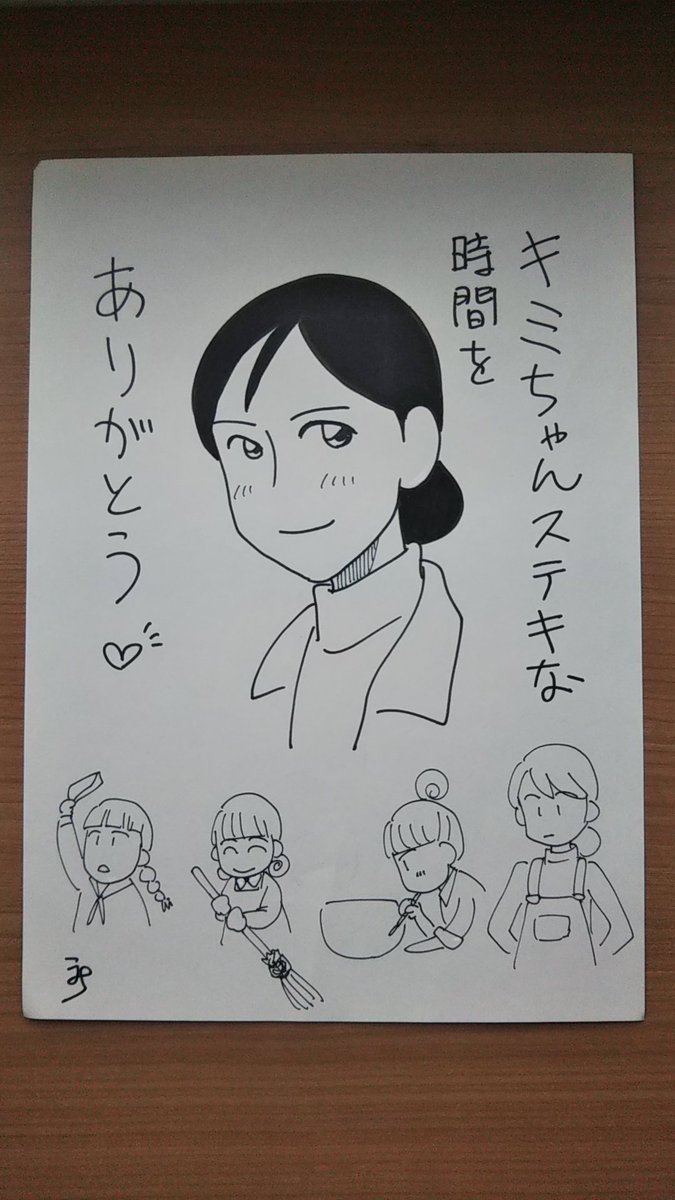 キミちゃんステキな
時間を
ありがとう♡